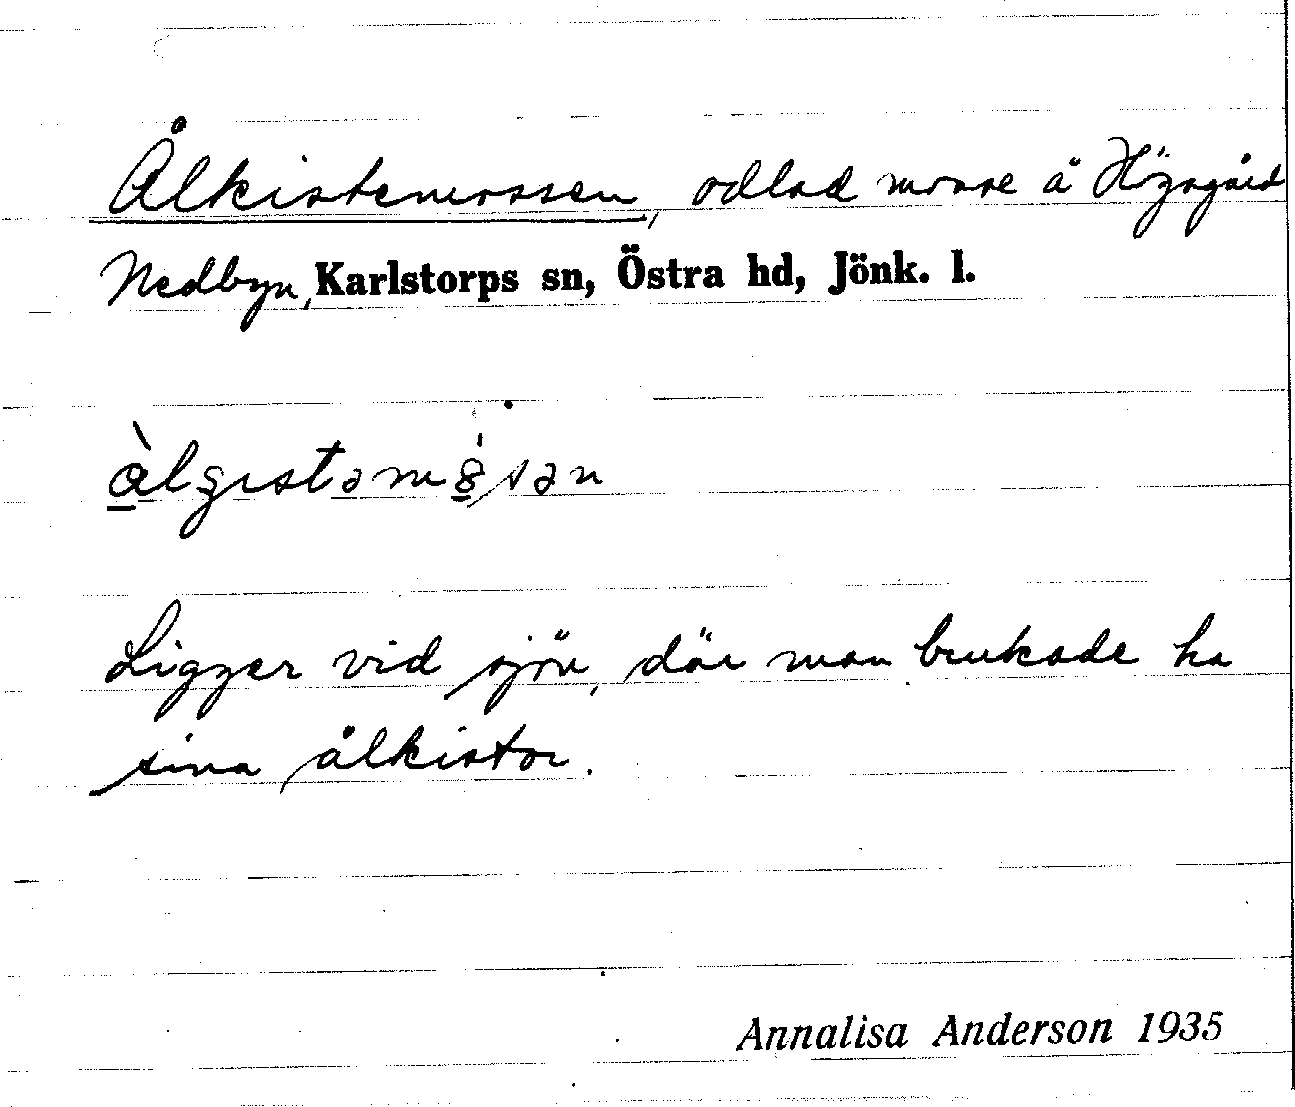 Ålkistemossen, odlad mosse å Högagärd
Nedbyn, Karlstorps sn, Östra hd, Jönk. l.
Ligger vid sjön, där man brukade ha
sina ålkistor.
Annalisa Anderson 1935